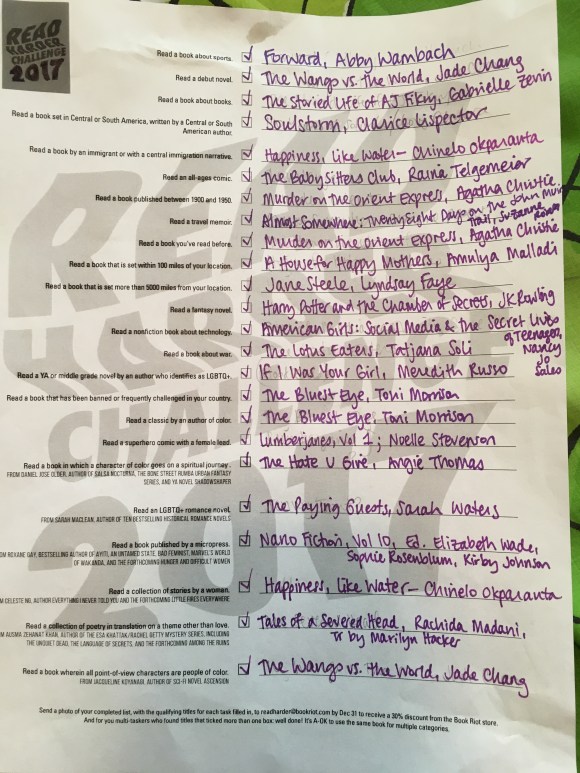 READ
HARDER
CHALLENGE
2017
Read a book about sports. Forward, Abby Wambach
Read a debut novel. The Wangs vs. the World, Jade Chang
Read a book about books. The Storied Life of AJ Fikry, Gabrielle Zevin
Read a book set in Central or South America, written by a Central or South
American author. Soulstorm, Clarice Lispector
Read a book by an immigrant or with a central immigration narrative. Happiness, Like Water - Chinelo Okparanta
Read an all-ages comic. The Babysitters Club, Raina Telgemeier
Read a book published between 1900 and 1950. Murder on the Orient Express, Agatha Christie
Read a travel memoir. Almost Somewhere: Twenty Eight Days on the John Muir
Trail, Suzanne
Roberts
Read a book you've read before. Murder on the Orient Express, Agatha Christie
Read a book that is set within 100 miles of your location. A House for Happy Mothers, Amulya Malladi
Read a book that is set more than 5000 miles from your location. Jane Steele, Lyndsay Faye
Read a fantasy novel. Harry Potter and the Chamber of Secrets, JK Rowling
Read a nonfiction book about technology. American Girls: Social Media & the Secret Lives
of Teenagers,
Nancy
Jo
Sales
Read a book about war. The Lotus Eaters, Tatjana Soli
Read a YA or middle grade novel by an author who identifies as LGBTQ+. If I Was Your Girl, Meredith Russo
Read a book that has been banned or frequently challenged in your country. The Bluest Eye, Toni Morrison
Read a classic by an author of color. The Bluest Eye, Toni Morrison
Read a superhero comic with a female lead. Lumberjanes, Vol 1; Noelle Stevenson
Read a book in which a character of color goes on a spiritual journey. The Hate U Give, Angie Thomas
FROM DANIEL JOSE OLDER, AUTHOR OF SALSA NOCTURNA, THE BONE STREET RUMBA URBAN FANTASY
SERIES, AND YA NOVEL SHADOWSHAPER
Read an LGBTQ+ romance novel. The Paying Guests, Sarah Waters
FROM SARAH MACLEAN, AUTHOR OF TEN BESTSELLING HISTORICAL ROMANCE NOVELS
Read a book published by a micropress. Nano Fiction, Vol 10, Ed. Elizabeth Wade,
Sophie Rosenblum, Kirby Johnson
OM ROXANE GAY, BESTSELLING AUTHOR OF AYITI, AN UNTAMED STATE, BAD FEMINIST, MARVEL'S WORLD
OF WAKANDA, AND THE FORTHCOMING HUNGER AND DIFFICULT WOMEN
Read a collection of stories by a woman. Happiness, Like Water - Chinelo Okparanta
M CELESTE NG, AUTHOR EVERYTHING I NEVER TOLD YOU AND THE FORTHCOMING LITTLE FIRES EVERYWHERE
Read a collection of poetry in translation on a theme other than love. Tales of a Severed Head, Rachida Madani,
Tr by Marilyn Hacker
M AUSMA ZEHANAT KHAN, AUTHOR OF THE ESA KHATTAK/RACHEL GETTY MYSTERY SERIES, INCLUDING
THE UNQUIET DEAD, THE LANGUAGE OF SECRETS, AND THE FORTHCOMING AMONG THE RUINS
Read a book wherein all point-of-view characters are people of color. The Wangs vs. the World, Jade Chang
FROM JACQUELINE KOYANAGI, AUTHOR OF SCI-FI NOVEL ASCENSION
Send a photo of your completed list, with the qualifying titles for each task filled in, to readharder@bookriot.com by Dec 31 to receive a 30% discount from the Book Riot store.
And for you multi-taskers who found titles that ticked more than one box: well done! It's A-OK to use the same book for multiple categories.
READ
HARDER
CHALLENGE
2017